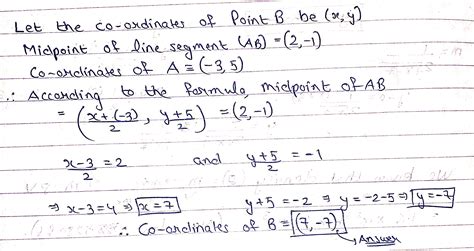 Let the co-ordinates of Point B be (x, y)
Midpoint of line segment (AB) = (2, -1)
Co-ordinates of A ≡ (-3, 5)
∴ According to the formula, midpoint of AB
= (x+(-3)/2 , y+5/2) = (2, -1)
x-3/2 = 2 and y+5/2 = -1
⇒ x-3=4 ⇒ x=7 y+5 = -2 ⇒ y = -2-5 ⇒ y=-7
∴ Co-ordinates of B = (7, -7)
→ Answer